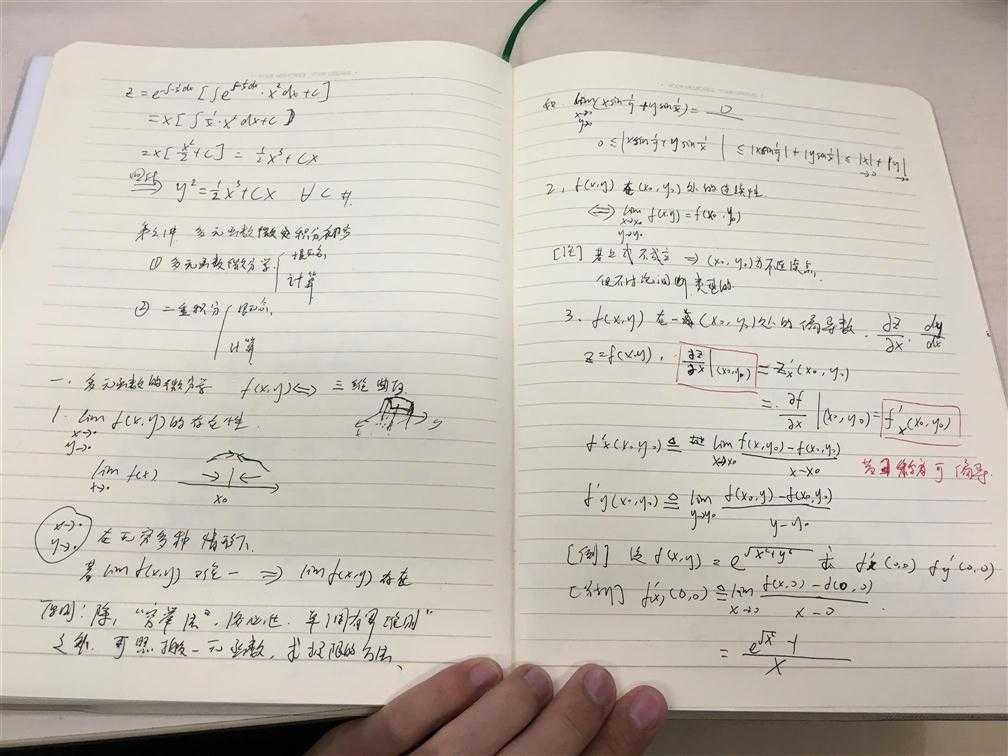 z = e^{-∫-\frac{1}{x}dx} [∫e^{∫-\frac{1}{x}dx}·x²dx+C]
= x[∫\frac{1}{x}·x²dx+C]
= x[\frac{x²}{2}+C] = \frac{1}{2}x³+Cx
⟹ y² = \frac{1}{2}x³+Cx ∀C
多元函数微积分初步
① 多元函数微分学
计算
② 二重积分
计算
一. 多元函数的微分学 f(x,y) ⟺ 三维曲面
y
1. lim f(x,y)的存在性
x→·
y→·
lim f(x)
x→·
x₀
x→·
y→· 在无穷多种情形下
若lim f(x,y) 唯一 ⟹ lim f(x,y) 存在
原则:除,"穷举法",洛必达,单调有界准则"
之外,可照搬一元函数,求极限的方法、
lim (xsin\frac{1}{y}+ysin\frac{1}{x}) = 0
x→0
y→0
0 ≤ |xsin\frac{1}{y}+ysin\frac{1}{x}| ≤ |xsin\frac{1}{y}|+|ysin\frac{1}{x}| ≤ |x|+|y|
→0 →0
2, f(x,y) 在(x₀,y₀)处的连续性
⟺ lim f(x,y) = f(x₀,y₀)
x→x₀
y→y₀
[注] 若上式不成立 ⟹ (x₀,y₀)为不连续点,
但不讨论间断类型的
3. f(x,y)在一点(x₀,y₀)处的偏导数. \frac{∂z}{∂x}. \frac{dy}{dx}
z=f(x,y), \frac{∂z}{∂x}|(x₀,y₀) = z'x(x₀,y₀)
= \frac{∂f}{∂x}|(x₀,y₀) = f'x(x₀,y₀)
f'x(x₀,y₀) ≜ lim \frac{f(x,y₀)-f(x₀,y₀)}{x-x₀}
x→x₀
称为可偏导
f'y(x₀,y₀) ≜ lim \frac{f(x₀,y)-f(x₀,y₀)}{y-y₀}
y→y₀
[例] 设 f(x,y) = e^{\sqrt{x²+y⁴}} 求 f'x(0,0) f'y(0,0)
[分析] f'x(0,0) ≜ lim \frac{f(x,0)-f(0,0)}{x-0}
x→0
= \frac{e^{\sqrt{x²}}-1}{x}